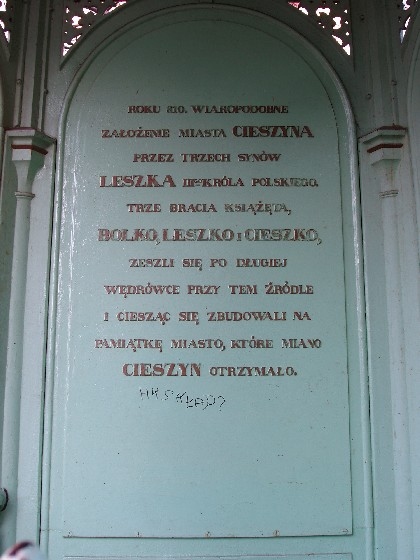 ROKU 810. WIAROPODOBNE
ZAŁOŻENIE MIASTA CIESZYNA
PRZEZ TRZECH SYNÓW
LESZKA III GO KRÓLA POLSKIEGO.
TRZE BRACIA KSIĄŻĘTA,
BOLKO, LESZKO I CIESZKO,
ZESZLI SIĘ PO DŁUGIEJ
WĘDRÓWCE PRZY TEM ŹRÓDLE
I CIESZĄC SIĘ ZBUDOWALI NA
PAMIĄTKĘ MIASTO, KTÓRE MIANO
CIESZYN OTRZYMAŁO.